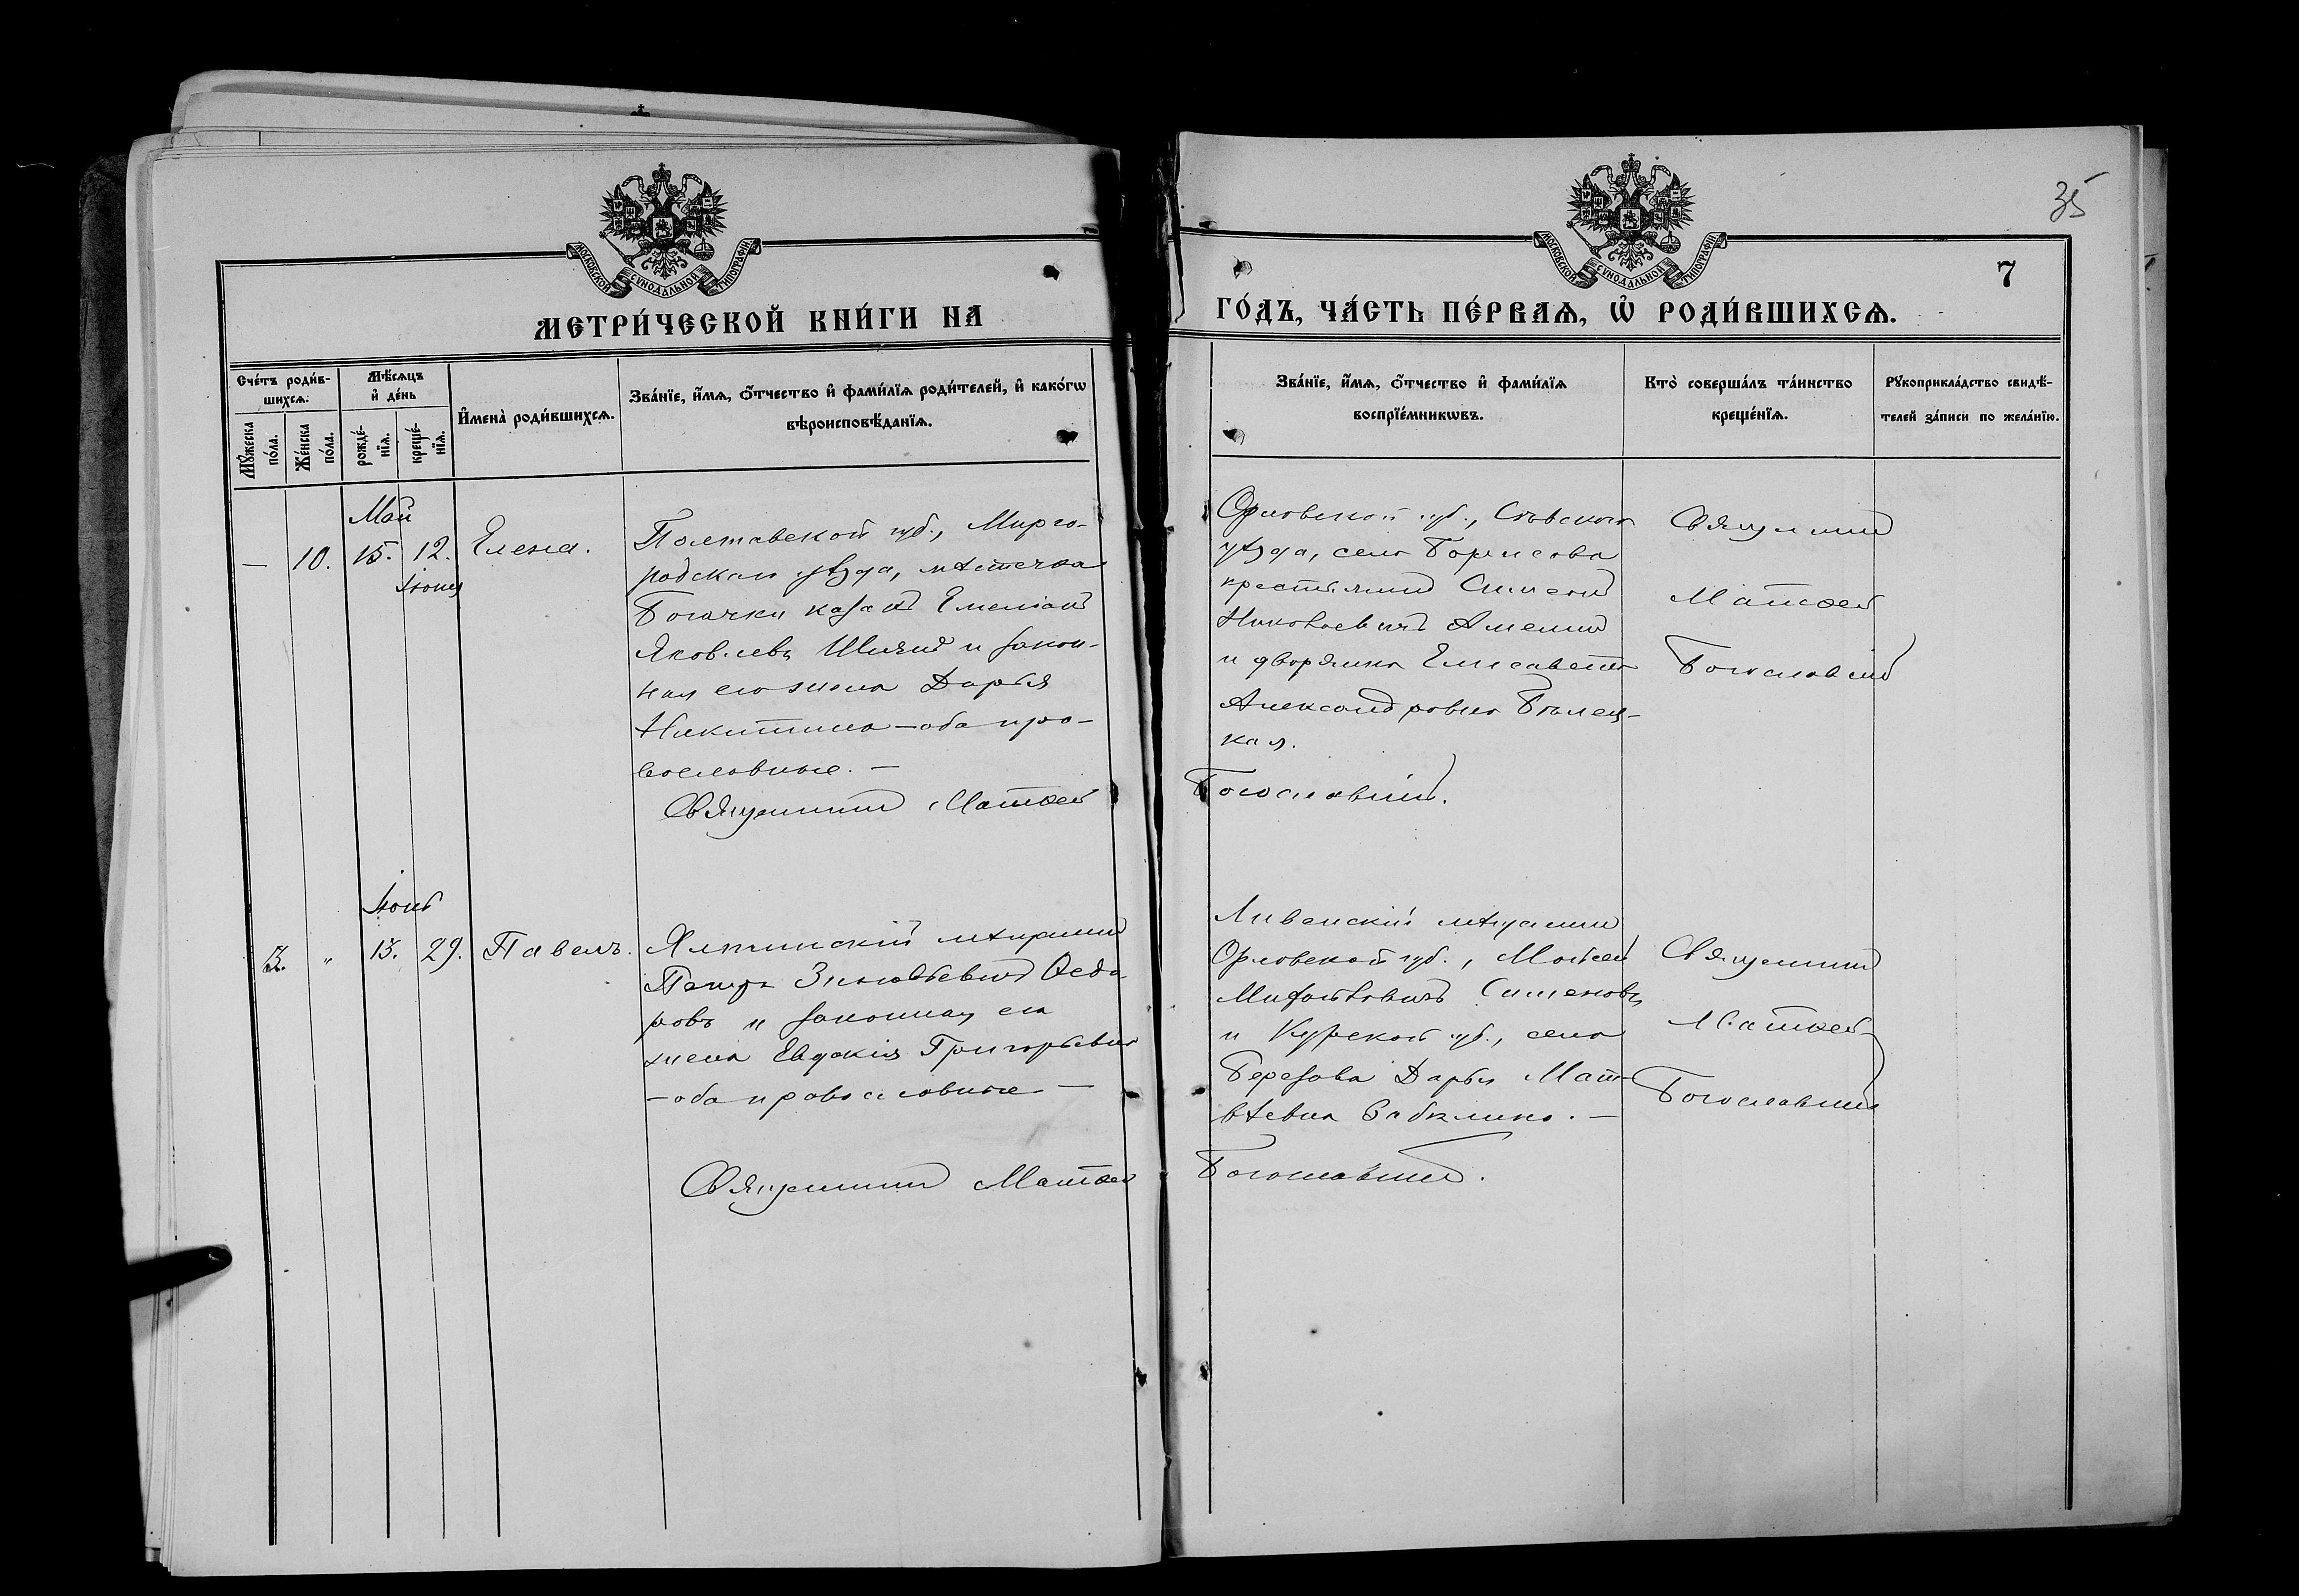 35
7
МОСКОВСКОЙ СѴНОДАЛЬНОЙ ТИПОГРАФІИ
МОСКОВСКОЙ СѴНОДАЛЬНОЙ ТИПОГРАФІИ
МЕТРИ́ЧЕСКОЙ КНИ́ГИ НА
ГО́ДЪ, ЧА́СТЬ ПЕ́РВАѦ, Ѽ РОДИ́ВШИХСѦ.
Сче́тъ роди́в-
шихсѧ.
Мꙋ́жеска
по́ла.
Же́нска
по́ла.
Мѣ́сѧцъ
и҆ де́нь
рожде́-
нїѧ.
креще́-
нїѧ.
И҆мена̀ роди́вшихсѧ.
Зва́нїе, и҆́мѧ, ѻ҆́тчество и҆ фами́лїѧ роди́телей, и҆ како́гѡ
вѣроисповѣ́данїѧ.
Зва́нїе, и҆́мѧ, ѻ҆́тчество и҆ фами́лїѧ
воспрїе́мникѡвъ.
Кто̀ соверша́лъ та́инство
креще́нїѧ.
Рꙋкоприкла́дство свидѣ́-
телей за́писи по жела́нїю.
Май
— 10. 15. 12. Елена.
Іюня
Полтавской губ., Мирго-
родскаго уѣзда, мѣстечка
Богачки казакъ Емеліанъ
Яковлевъ и закон-
ная его жена Дарья
Никитина — оба пра-
вославные. —
Священникъ Матѳей
Орловской губ., Сѣвскаго
уѣзда, села Борисова
крестьянинъ Симеонъ
Николаевичъ
и дворянка Елисавета
Александровна Бѣлец-
кая.
Богословскій.
Священникъ
Матѳей
Богословскій
Іюнь
3. „ 13. 29. Павелъ.
Ялтинскій мѣщанинъ
Петръ Зиновьевичъ Ѳедо-
ровъ и законная его
жена Евдокія Григорьевна
— оба православные —
Священникъ Матѳей
Ливенскій мѣщанинъ
Орловской губ., Моѵсей
Симеоновъ
и Курской губ., села
Березова Дарья Мат-
вѣевна —
Богословскій.
Священникъ
Матѳей
Богословскій